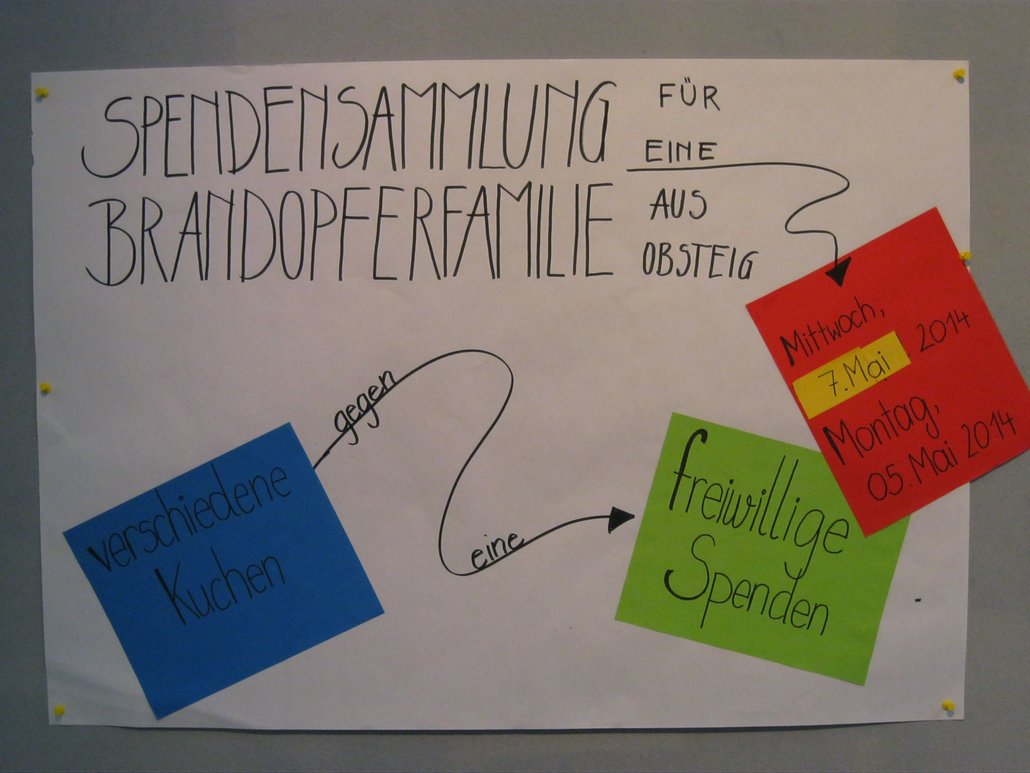 SPENDENSAMMLUNG FÜR
EINE
BRANDOPFERFAMILIE AUS
OBSTEIG
Mittwoch,
7. Mai 2014
Montag,
05. Mai 2014
verschiedene
Kuchen
gegen
eine
freiwillige
Spenden